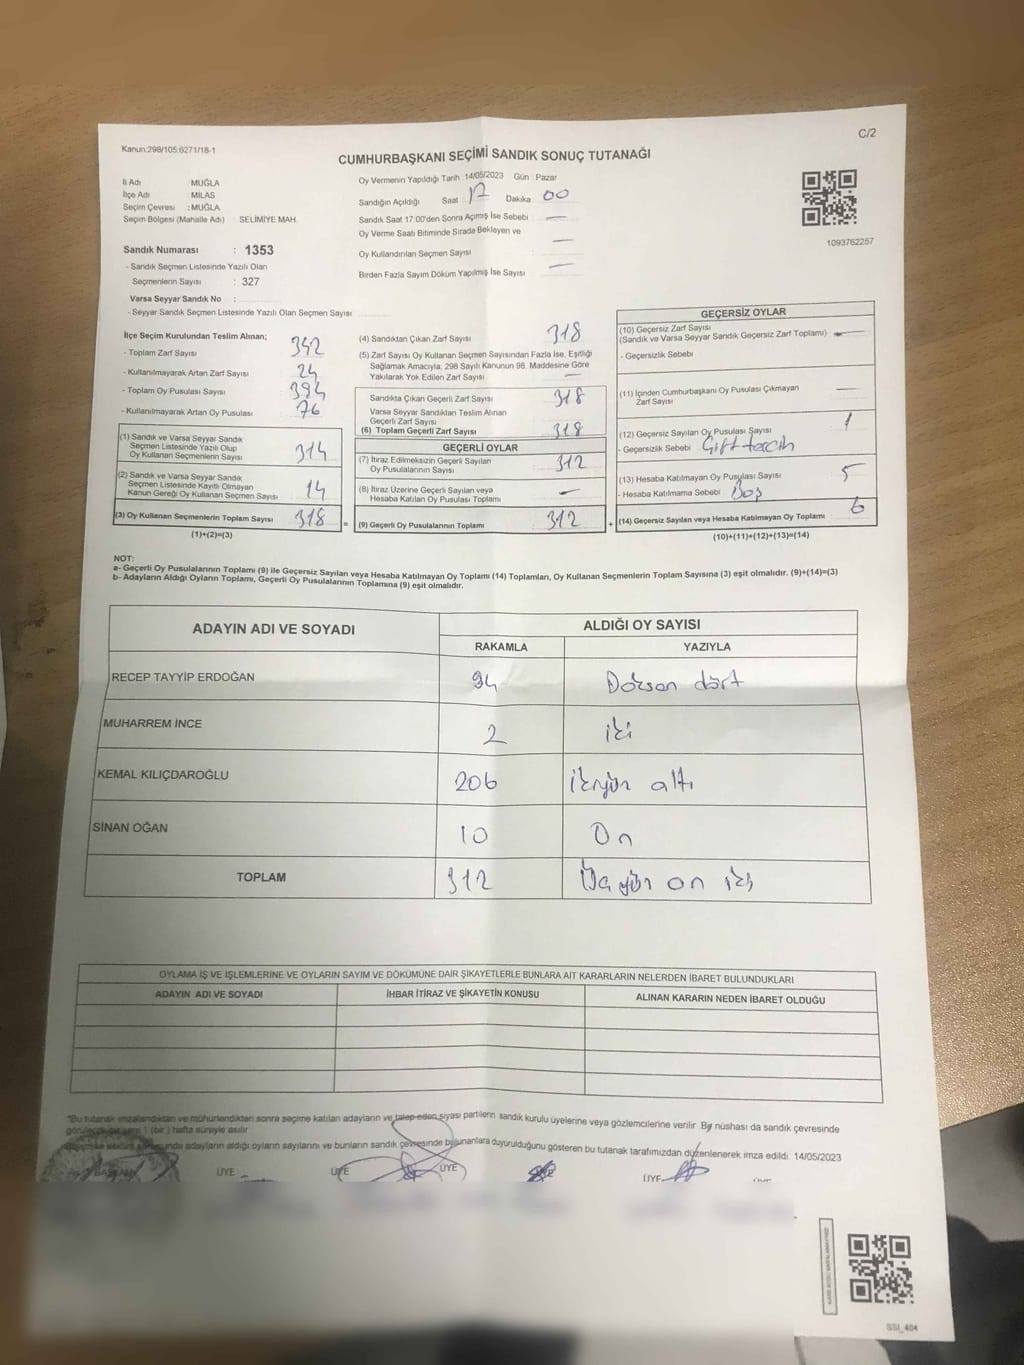 Kanun:298/105.6271/18-1
C/2
CUMHURBAŞKANI SEÇİMİ SANDIK SONUÇ TUTANAĞI
İl Adı : MUĞLA
İlçe Adı : MİLAS
Seçim Çevresi : MUĞLA
Seçim Bölgesi (Mahalle Adı) : SELİMİYE MAH.
Sandık Numarası : 1353
- Sandık Seçmen Listesinde Yazılı Olan
Seçmenlerin Sayısı : 327
Varsa Seyyar Sandık No :
- Seyyar Sandık Seçmen Listesinde Yazılı Olan Seçmen Sayısı
Oy Vermenin Yapıldığı Tarih :14/05/2023 Gün : Pazar
Sandığın Açıldığı Saat : 17 Dakika : 00
Sandık Saat 17:00'den Sonra Açımış İse Sebebi : —
Oy Verme Saati Bitiminde Sırada Bekleyen ve
Oy Kullandırılan Seçmen Sayısı : —
Birden Fazla Sayım Döküm Yapılmış İse Sayısı : —
1093762257
İlçe Seçim Kurulundan Teslim Alınan;
- Toplam Zarf Sayısı : 342
- Kullanılmayarak Artan Zarf Sayısı : 24
- Toplam Oy Pusulası Sayısı : 394
- Kullanılmayarak Artan Oy Pusulası : 76
(1) Sandık ve Varsa Seyyar Sandık
Seçmen Listesinde Yazılı Olup
Oy Kullanan Seçmenlerin Sayısı : 314
(2) Sandık ve Varsa Seyyar Sandık
Seçmen Listesinde Kayıtlı Olmayan
Kanun Gereği Oy Kullanan Seçmen Sayısı : 14
(3) Oy Kullanan Seçmenlerin Toplam Sayısı : 318 =
(1)+(2)=(3)
(4) Sandıktan Çıkan Zarf Sayısı : 318
(5) Zarf Sayısı Oy Kullanan Seçmen Sayısından Fazla İse, Eşitliği
Sağlamak Amacıyla; 298 Sayılı Kanunun 98. Maddesine Göre
Yakılarak Yok Edilen Zarf Sayısı : —
Sandıkta Çıkan Geçerli Zarf Sayısı : 318
Varsa Seyyar Sandıktan Teslim Alınan
Geçerli Zarf Sayısı :
(6) Toplam Geçerli Zarf Sayısı : 318
GEÇERLİ OYLAR
(7) İtiraz Edilmeksizin Geçerli Sayılan
Oy Pusulalarının Sayısı : 312
(8) İtiraz Üzerine Geçerli Sayılan veya
Hesaba Katılan Oy Pusulası Toplamı : —
(9) Geçerli Oy Pusulalarının Toplamı : 312 +
GEÇERSİZ OYLAR
(10) Geçersiz Zarf Sayısı
(Sandık ve Varsa Seyyar Sandık Geçersiz Zarf Toplamı) : —
- Geçersizlik Sebebi
(11) İçinden Cumhurbaşkanı Oy Pusulası Çıkmayan
Zarf Sayısı : —
(12) Geçersiz Sayılan Oy Pusulası Sayısı : 1
- Geçersizlik Sebebi Çift tercih
(13) Hesaba Katılmayan Oy Pusulası Sayısı : 5
- Hesaba Katılmama Sebebi : Boş
(14) Geçersiz Sayılan veya Hesaba Katılmayan Oy Toplamı : 6
(10)+(11)+(12)+(13)=(14)
NOT:
a- Geçerli Oy Pusulalarının Toplamı (9) ile Geçersiz Sayılan veya Hesaba Katılmayan Oy Toplamı (14) Toplamları, Oy Kullanan Seçmenlerin Toplam Sayısına (3) eşit olmalıdır. (9)+(14)=(3)
b- Adayların Aldığı Oyların Toplamı, Geçerli Oy Pusulalarının Toplamına (9) eşit olmalıdır.
ADAYIN ADI VE SOYADI ALDIĞI OY SAYISI
RAKAMLA YAZIYLA
RECEP TAYYİP ERDOĞAN 94 Doksan dört
MUHARREM İNCE 2 iki
KEMAL KILIÇDAROĞLU 206 ikiyüz altı
SİNAN OĞAN 10 On
TOPLAM 312 Üçyüz on iki
OYLAMA İŞ VE İŞLEMLERİNE VE OYLARIN SAYIM VE DÖKÜMÜNE DAİR ŞİKAYETLERLE BUNLARA AİT KARARLARIN NELERDEN İBARET BULUNDUKLARI
ADAYIN ADI VE SOYADI İHBAR İTİRAZ VE ŞİKAYETİN KONUSU ALINAN KARARIN NEDEN İBARET OLDUĞU
"Bu tutanak imzalandıktan ve mühürlendikten sonra seçime katılan adayların ve talep eden siyasi partilerin sandık kurulu üyelerine veya gözlemcilerine verilir. Bir nüshası da sandık çevresinde
1 (bir) hafta süreyle asılır
adayların aldığı oyların sayılarını ve bunların sandık çevresinde bulunanlara duyurulduğunu gösteren bu tutanak tarafımızdan düzenlenerek imza edildi. 14/05/2023
BAŞKAN ÜYE ÜYE ÜYE ÜYE ÜYE
SSI_404